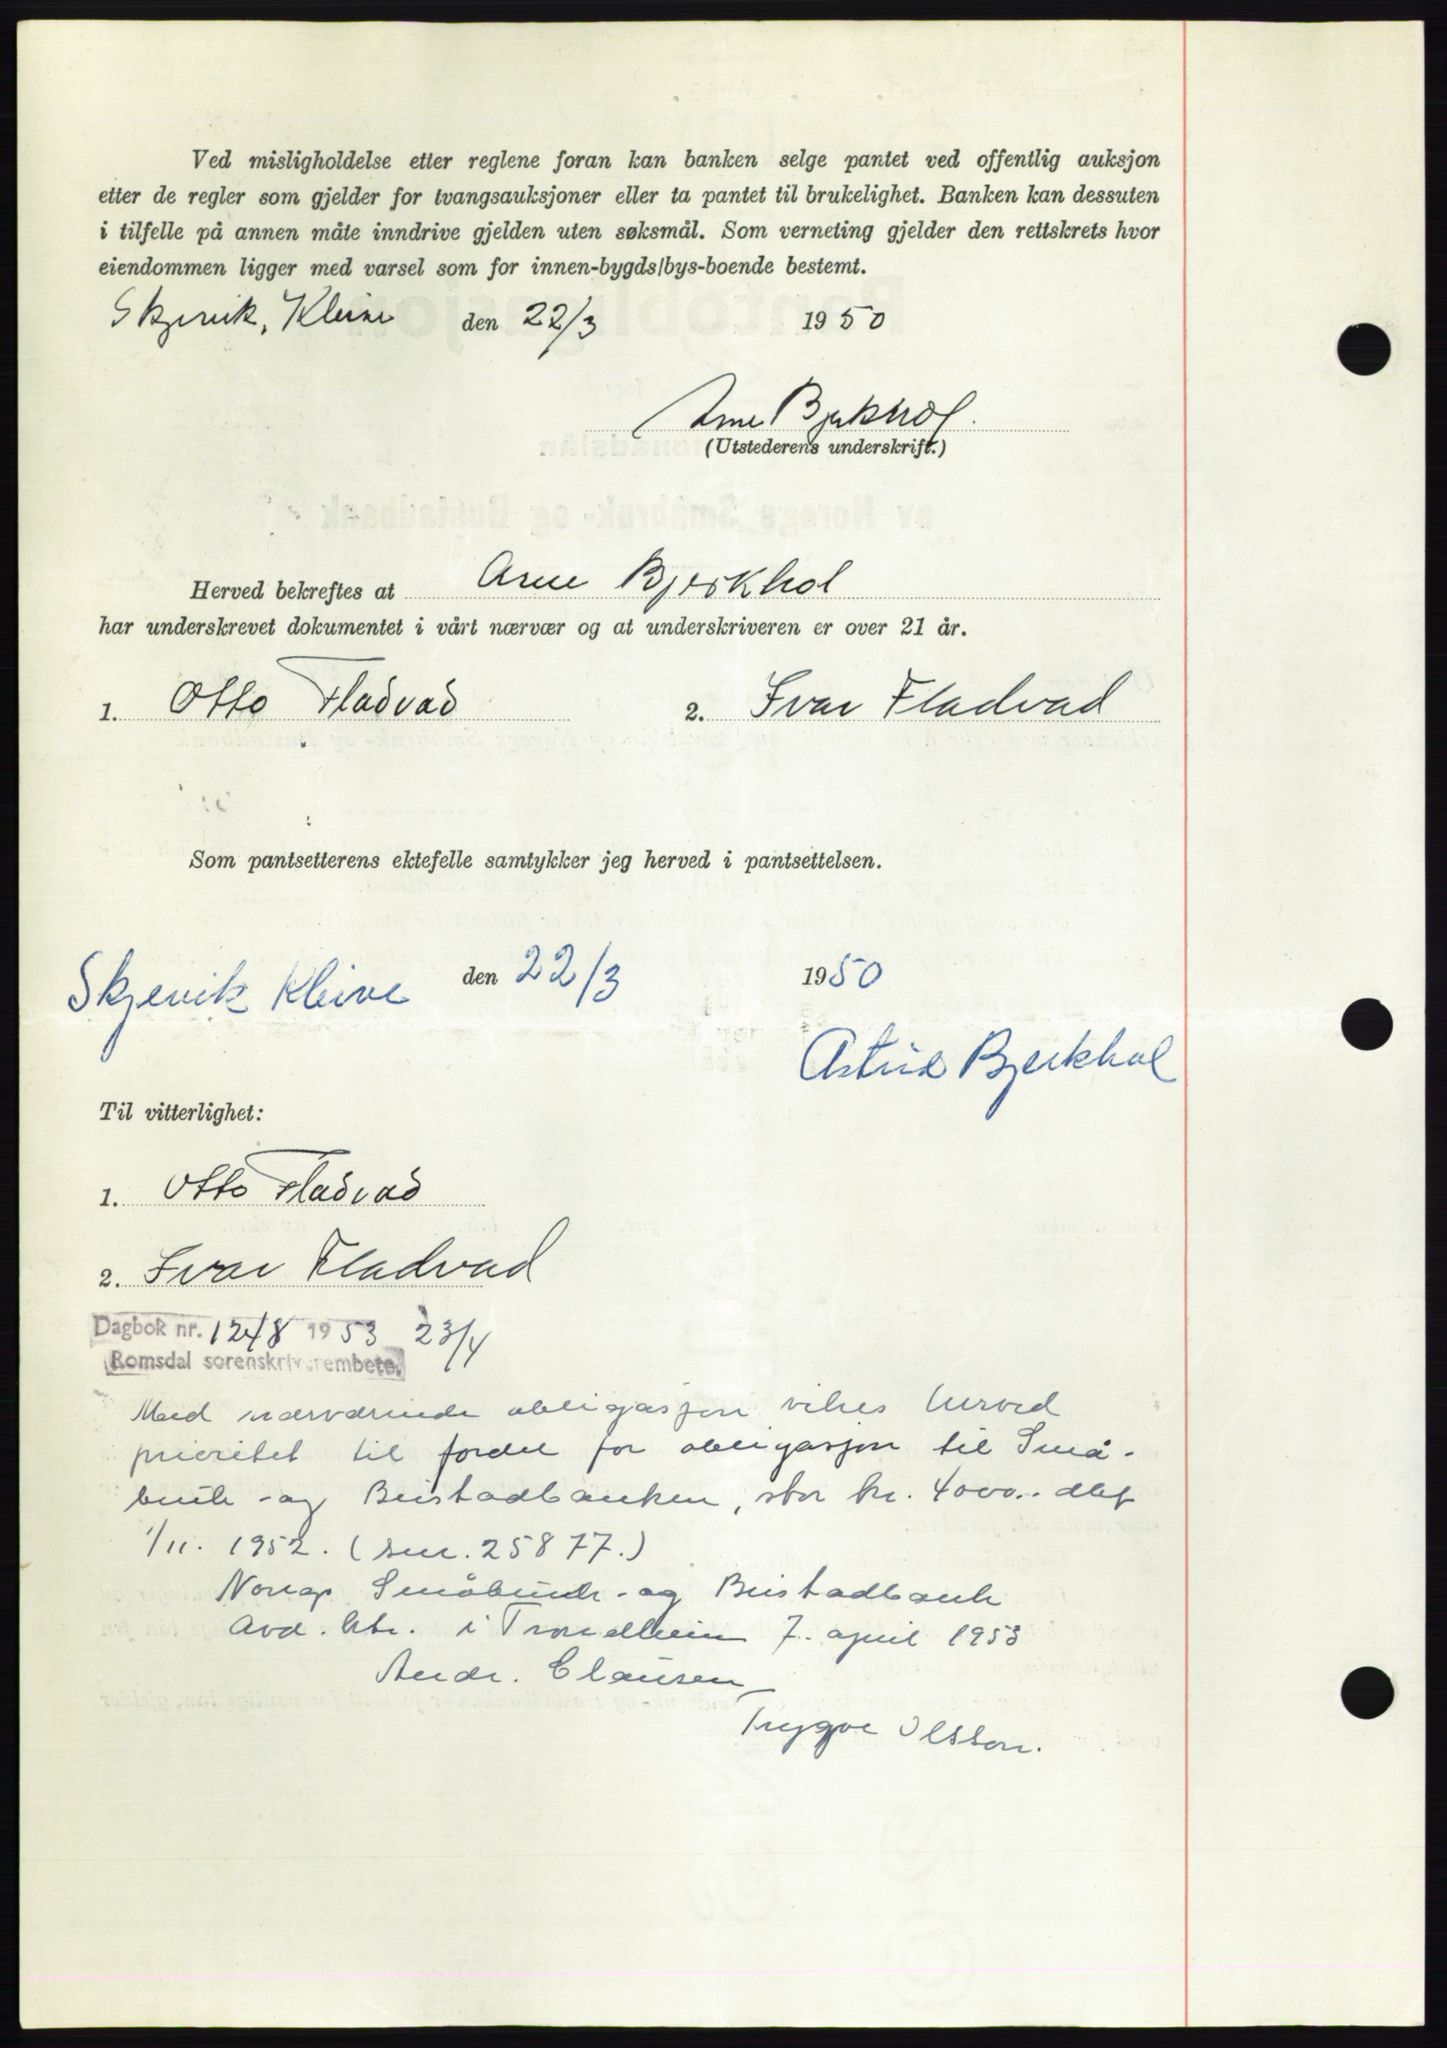 Ved misligholdelse etter reglene foran kan banken selge pantet ved offentlig auksjon
etter de regler som gjelder for tvangsauksjoner eller ta pantet til brukelighet. Banken kan dessuten
i tilfelle på annen måte inndrive gjelden uten søksmål. Som verneting gjelder den rettskrets hvor
eiendommen ligger med varsel som for innen-bygds/bys-boende bestemt.
Skjevik, Kleive den 22/3 1950
Arne Bjerkhol.
(Utstederens underskrift.)
Herved bekreftes at Arne Bjerkhol
har underskrevet dokumentet i vårt nærvær og at underskriveren er over 21 år.
1. Otto Fladvad 2. Ivar Fladvad
Som pantsetterens ektefelle samtykker jeg herved i pantsettelsen.
Skjevik Kleive den 22/3 1950
Astrid Bjerkhol
Til vitterlighet:
1. Otto Fladvad
2. Ivar Fladvad
Dagbok nr. 1248 1953 23/4
Romsdal sorenskriverembete.
Med nærværende obligasjon vikes herved
prioritet til fordel for obligasjon til Små-
bruk- og Bustadbanken, stor kr. 4000.- dat
1/11. 1952. (snr. 25877.)
Noregs Småbruk- og Bustadbank
Avd. ktr. i Trondheim 7. april 1953
Andr. Clausen
Trygve Olsson.